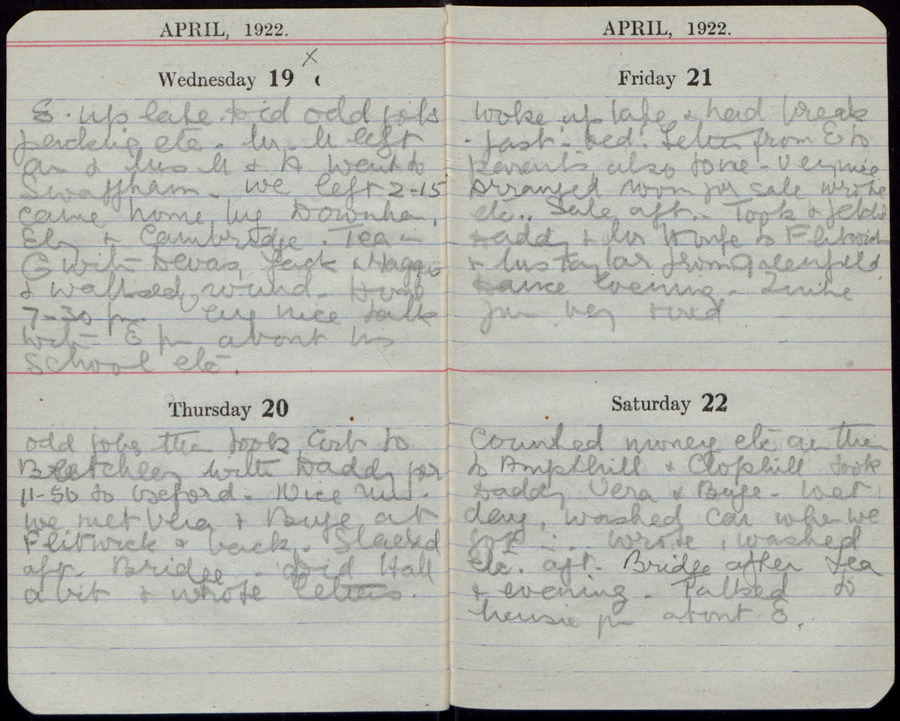 APRIL, 1922.
Wednesday 19 x
S. up late. did odd jobs
packing etc. Mr. M left
am & Mrs M & A went to
Swaffham. We left 2-15
came home by Downham,
Ely & Cambridge. Tea in
C with Devas, Jack &
& walked round. Home
7-30 pm. nice talk
with E pm about his
School etc.
Thursday 20
odd jobs then took to
Bletchley with Daddy for
11-50 to Oxford. Nice run.
we met Vera & Buje at
Flitwick & back. Slacked
aft. Bridge. did Hall
a bit & wrote letters.
APRIL, 1922.
Friday 21
Woke up late & had break
-fast in bed. Letter from E to
parents also to me. Very nice
Arranged room for sale wrote
etc.. Sale aft. Took
Daddy & to Flitwick
& Mrs Taylor from Greenfield.
Dance Evening.
pm very tired
Saturday 22
Counted money etc am then
to Ampthill & Clophill took
Daddy Vera & Buje. Wet
day, washed car when we
got in. Wrote, washed
etc. aft. Bridge after tea
& evening. Talked to
pm about E.